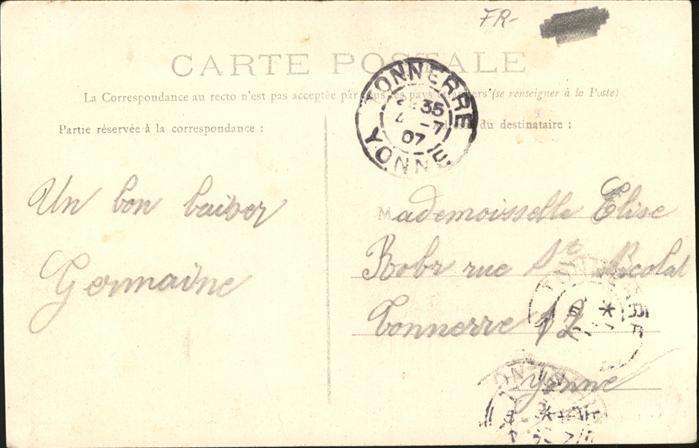 FR-
CARTE POSTALE
La Correspondance au recto n'est pas acceptée par tous les pays (se renseigner à la Poste)
Partie réservée à la correspondance :
du destinataire :
TONNERRE
35
4 -7
07
YONNE
Un bon baiser
Germaine
Mademoisselle Elise
Robr rue St Nicolas
Tonnerre 12
Yonne